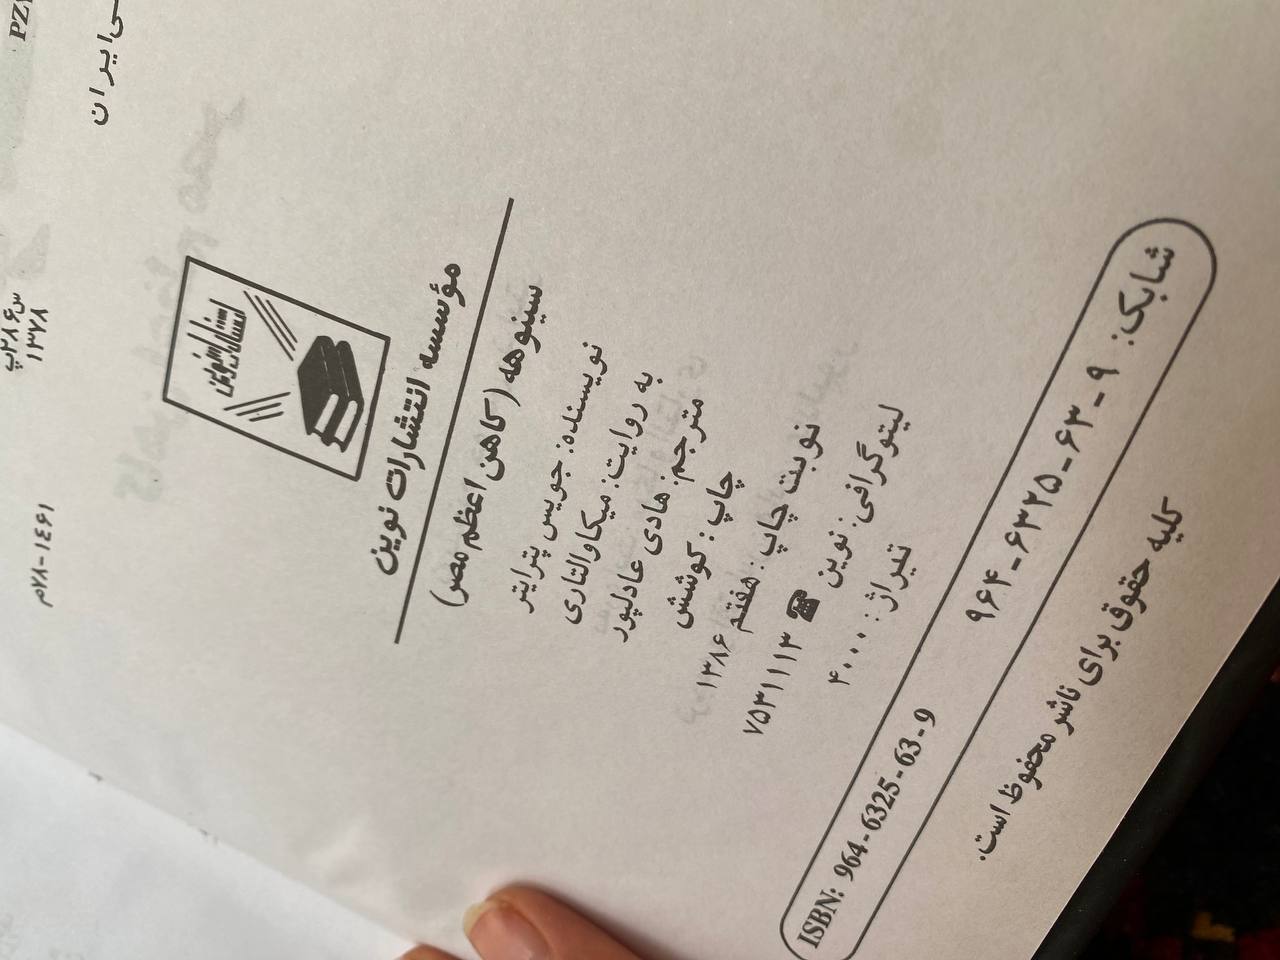 ـی ایران
PZ۷
س۲۸۶پ
۱۳۷۸
م۷۸-۱۴۶۱
انتشارات نوین
مؤسسه انتشارات نوین
سینوهه (کاهن اعظم مصر)
نویسنده: جویس پترایتر
به روایت: میکا والتاری
مترجم: هادی عادلپور
چاپ: کوشش
نوبت چاپ: هفتم ۱۳۸۶
لیتوگرافی: نوین ☎ ۷۵۳۱۱۱۳
تیراژ: ۴۰۰۰
شابک: ۹ - ۶۳ - ۶۳۲۵ - ۹۶۴
ISBN: 964 - 6325 - 63 - 9
کلیه حقوق برای ناشر محفوظ است.